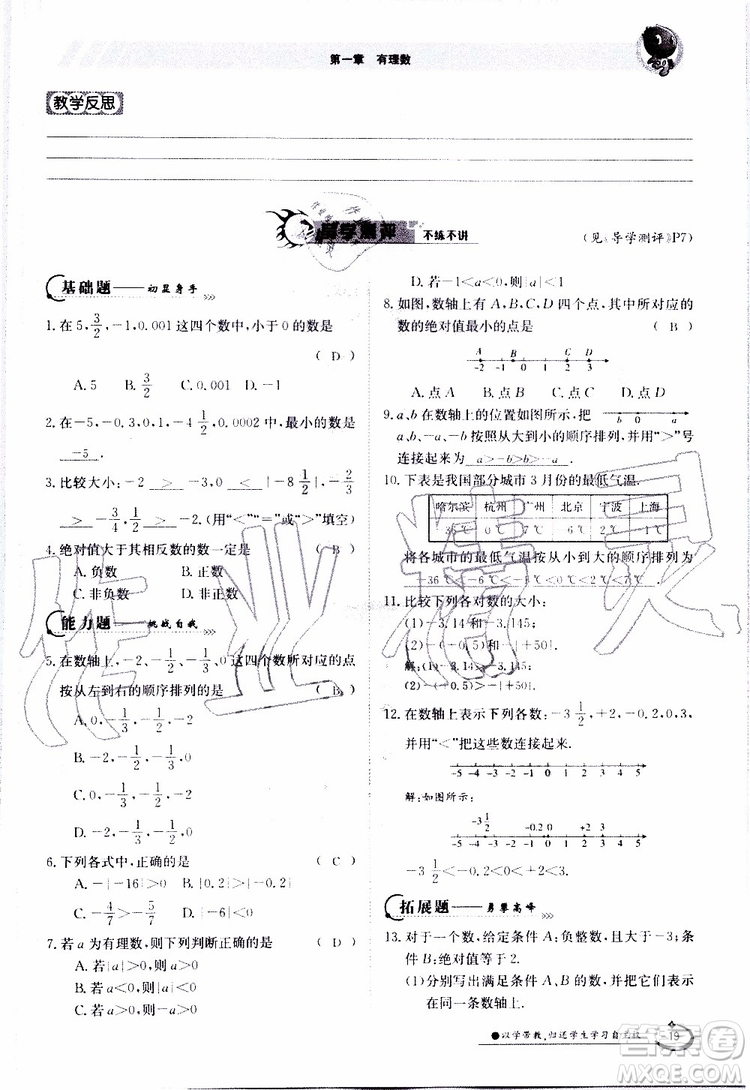 第一章 有理数
教学反思
导学测评 不练不讲
(见《导学测评》P7)
基础题——初显身手
1.在5,3/2,-1,0.001这四个数中,小于0的数是
( D )
A.5 B.3/2 C.0.001 D.-1
2.在-5,-0.3,0,-4 1/2,0.0002中,最小的数是
-5 .
3.比较大小:-2 > -3,0 < |-8 1/2|,
-3/4 > -2.(用“<”“=”或“>”填空)
4.绝对值大于其相反数的数一定是 ( B )
A.负数 B.正数
C.非负数 D.非正数
能力题——挑战自我
5.在数轴上,-2,-1/2,-1/3,0这四个数所对应的点
按从左到右的顺序排列的是 ( D )
A.0,-1/3,-1/2,-2
B.-2,-1/3,-1/2,0
C.0,-1/2,-1/3,-2
D.-2,-1/2,-1/3,0
6.下列各式中,正确的是 ( C )
A.-|-16|>0 B.|0.2|>|-0.2|
C.-4/7>-5/7 D.|-6|<0
7.若a为有理数,则下列判断正确的是 ( D )
A.若|a|>0,则a>0
B.若|a|>0,则a<0
C.若a<0,则-a<0
D.若-1<a<0,则|a|<1
8.如图,数轴上有A,B,C,D四个点,其中所对应的
数的绝对值最小的点是 ( B )
A B C D
-2 -1 0 1 2 3
A.点A B.点B C.点C D.点D
9.a,b在数轴上的位置如图所示,把
b 0 a
a,b,-a,-b按照从大到小的顺序排列,并用“>”号
连接起来为 a>-b>b>-a .
10.下表是我国部分城市3月份的最低气温.
哈尔滨 杭州 广州 北京 宁波 上海
0℃ 7℃ 2℃
将各城市的最低气温按从小到大的顺序排列为
11.比较下列各对数的大小:
(1)-3.14与-3.145;
(2)-(-0.5)与-|+0.5|.
解:(1)-3.14>-3.145;
(2)-(-0.5)>-|+0.5|.
12.在数轴上表示下列各数:-3 1/2,+2,-0.2,0,3,
并用“<”把这些数连接起来.
-5 -4 -3 -2 -1 0 1 2 3 4 5
解:如图所示:
-3 1/2 -0.2 0 +2 3
-5 -4 -3 -2 -1 0 1 2 3 4 5
-3 1/2<-0.2<0<+2<3
拓展题——勇攀高峰
13.对于一个数,给定条件A:负整数,且大于-3;条
件B:绝对值等于2.
(1)分别写出满足条件A、B的数,并把它们表示
在同一条数轴上.
●以学带教,归还学生学习自主权
19
作业精灵